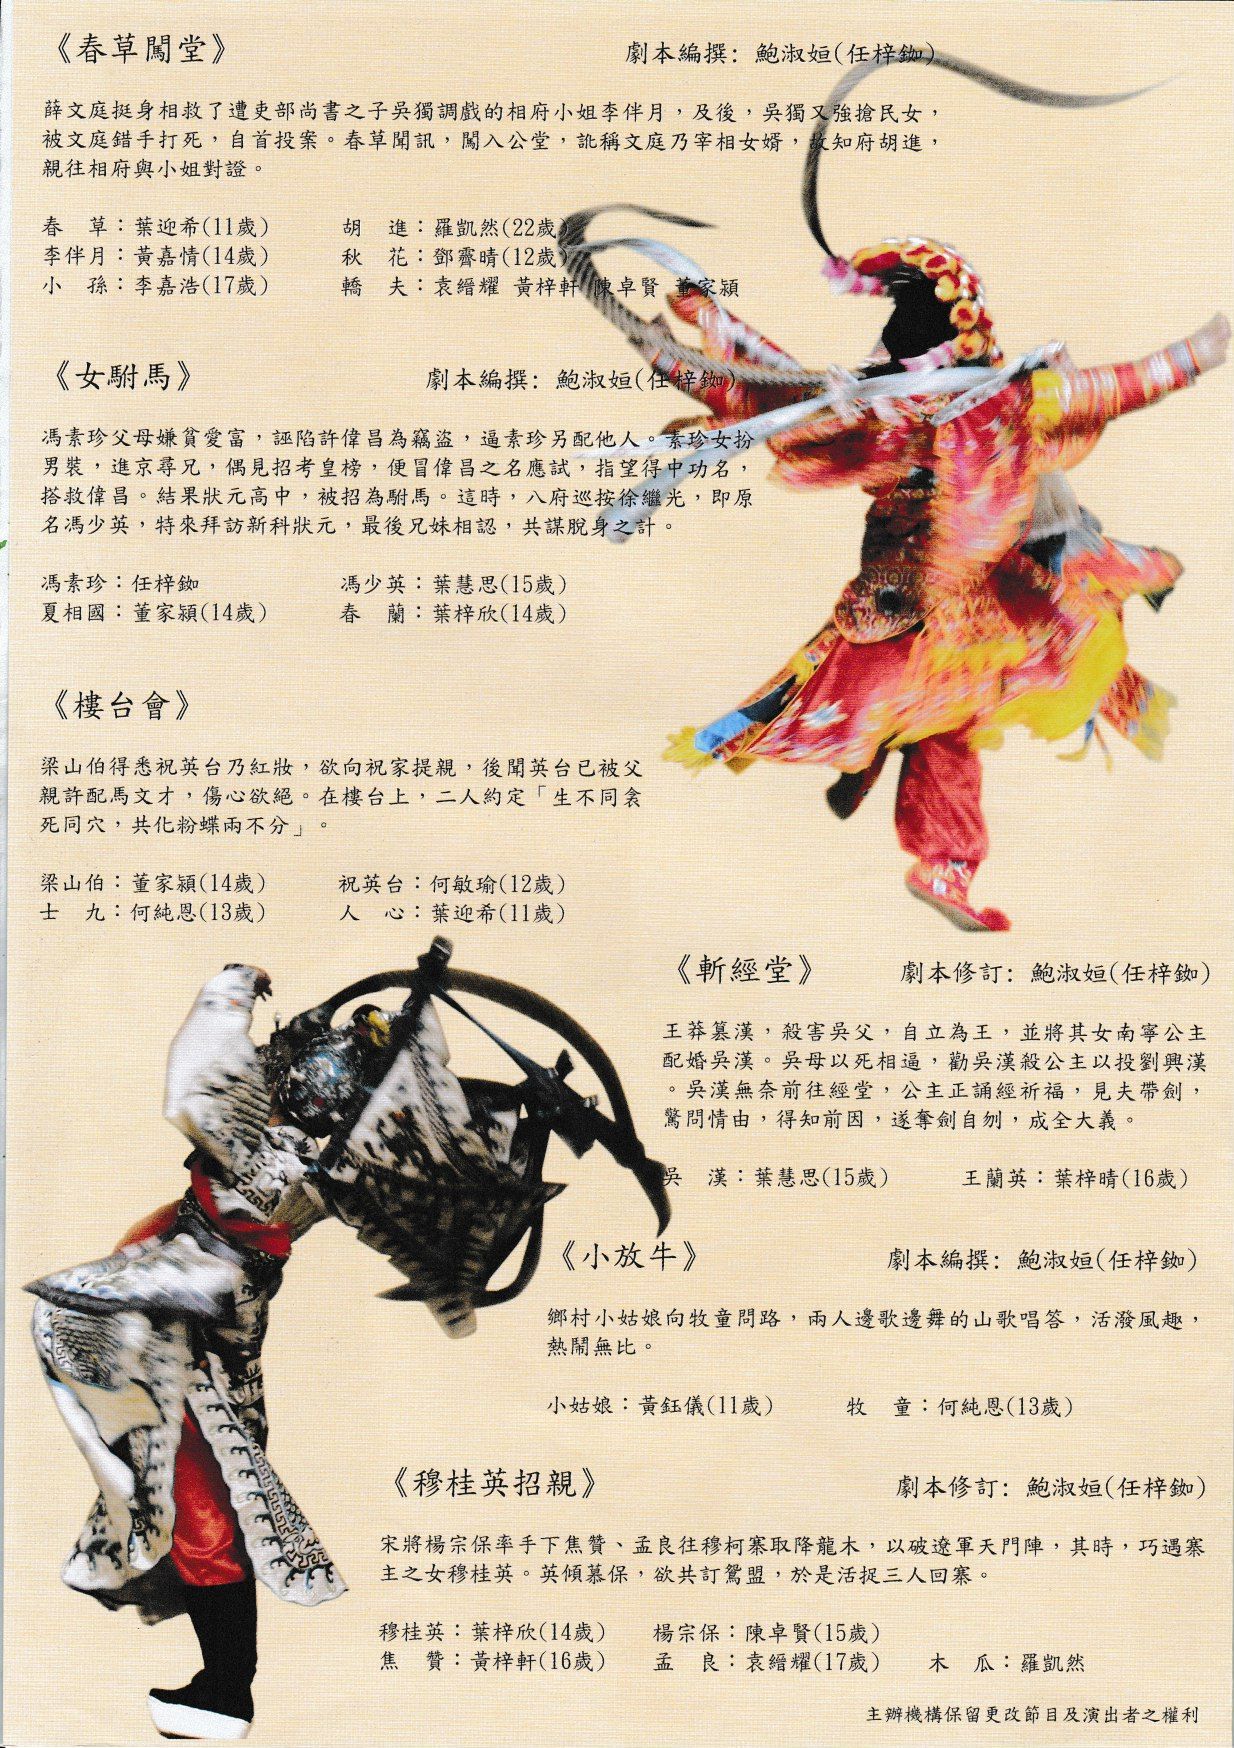 《春草闖堂》 劇本編撰: 鮑淑姮(任梓鉫)
薛文庭挺身相救了遭吏部尚書之子吳獨調戲的相府小姐李伴月，及後，吳獨又強搶民女，
被文庭錯手打死，自首投案。春草聞訊，闖入公堂，訛稱文庭乃宰相女婿，故知府胡進，
親往相府與小姐對證。
春　草：葉迎希(11歲)　胡　進：羅凱然(22歲)
李伴月：黃嘉情(14歲)　秋　花：鄧霽晴(12歲)
小　孫：李嘉浩(17歲)　轎　夫：袁縉耀 黃梓軒 陳卓賢 董家潁
《女駙馬》 劇本編撰: 鮑淑姮(任梓鉫)
馮素珍父母嫌貧愛富，誣陷許偉昌為竊盜，逼素珍另配他人。素珍女扮
男裝，進京尋兄，偶見招考皇榜，便冒偉昌之名應試，指望得中功名，
搭救偉昌。結果狀元高中，被招為駙馬。這時，八府巡按徐繼光，即原
名馮少英，特來拜訪新科狀元，最後兄妹相認，共謀脫身之計。
馮素珍：任梓鉫　馮少英：葉慧思(15歲)
夏相國：董家潁(14歲)　春　蘭：葉梓欣(14歲)
《樓台會》
梁山伯得悉祝英台乃紅妝，欲向祝家提親，後聞英台已被父
親許配馬文才，傷心欲絕。在樓台上，二人約定「生不同衾
死同穴，共化粉蝶兩不分」。
梁山伯：董家潁(14歲)　祝英台：何敏瑜(12歲)
士　九：何純恩(13歲)　人　心：葉迎希(11歲)
《斬經堂》 劇本修訂: 鮑淑姮(任梓鉫)
王莽篡漢，殺害吳父，自立為王，並將其女南寧公主
配婚吳漢。吳母以死相逼，勸吳漢殺公主以投劉興漢
。吳漢無奈前往經堂，公主正誦經祈福，見夫帶劍，
驚問情由，得知前因，遂奪劍自刎，成全大義。
吳　漢：葉慧思(15歲)　王蘭英：葉梓晴(16歲)
《小放牛》 劇本編撰: 鮑淑姮(任梓鉫)
鄉村小姑娘向牧童問路，兩人邊歌邊舞的山歌唱答，活潑風趣，
熱鬧無比。
小姑娘：黃鈺儀(11歲)　牧　童：何純恩(13歲)
《穆桂英招親》 劇本修訂: 鮑淑姮(任梓鉫)
宋將楊宗保率手下焦贊、孟良往穆柯寨取降龍木，以破遼軍天門陣，其時，巧遇寨
主之女穆桂英。英傾慕保，欲共訂鴛盟，於是活捉三人回寨。
穆桂英：葉梓欣(14歲)　楊宗保：陳卓賢(15歲)
焦　贊：黃梓軒(16歲)　孟　良：袁縉耀(17歲)　木　瓜：羅凱然
主辦機構保留更改節目及演出者之權利